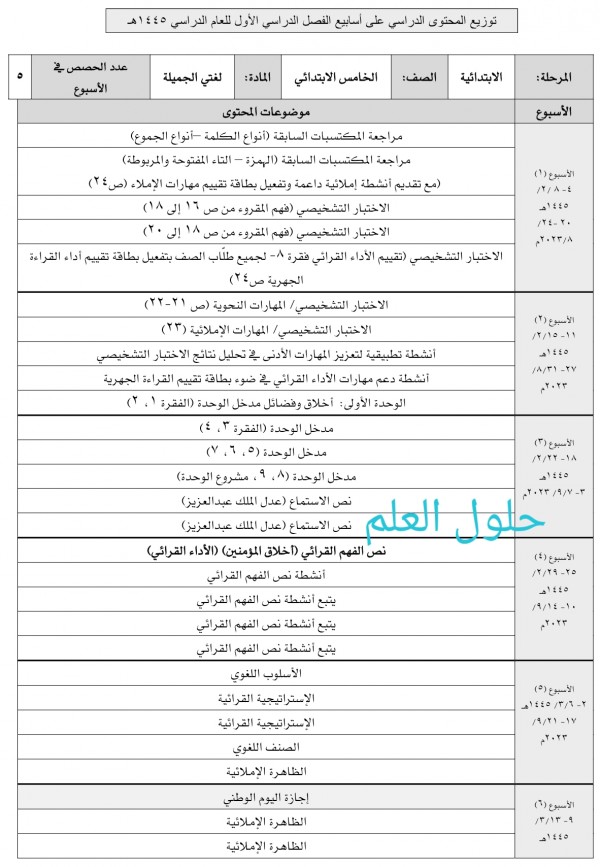 توزيع المحتوى الدراسي على أسابيع الفصل الدراسي الأول للعام الدراسي ١٤٤٥هـ
المرحلة: الابتدائية الصف: الخامس الابتدائي المادة: لغتي الجميلة عدد الحصص في الأسبوع ٥
الأسبوع موضوعات المحتوى
الأسبوع (١)
٤- ٢/٨/
١٤٤٥هـ
٢٠ -٢٤/
٢٠٢٣/٨م
مراجعة المكتسبات السابقة (أنواع الكلمة –أنواع الجموع)
مراجعة المكتسبات السابقة (الهمزة – التاء المفتوحة والمربوطة)
(مع تقديم أنشطة إملائية داعمة وتفعيل بطاقة تقييم مهارات الإملاء (ص٢٤)
الاختبار التشخيصي (فهم المقروء من ص ١٦ إلى ١٨)
الاختبار التشخيصي (فهم المقروء من ص ١٨ إلى ٢٠)
الاختبار التشخيصي (تقييم الأداء القرائي فقرة ٨- لجميع طلّاب الصف بتفعيل بطاقة تقييم أداء القراءة
الجهرية ص٢٤)
الأسبوع (٢)
١١- ٢/١٥/
١٤٤٥هـ
٢٧- ٨/٣١/
٢٠٢٣م
الاختبار التشخيصي/ المهارات النحوية (ص ٢١-٢٢)
الاختبار التشخيصي/ المهارات الإملائية (٢٣)
أنشطة تطبيقية لتعزيز المهارات الأدنى في تحليل نتائج الاختبار التشخيصي
أنشطة دعم مهارات الأداء القرائي في ضوء بطاقة تقييم القراءة الجهرية
الوحدة الأولى: أخلاق وفضائل مدخل الوحدة (الفقرة ١، ٢)
الأسبوع (٣)
١٨- ٢/٢٢/
١٤٤٥هـ
٣- ٩/٧/ ٢٠٢٣م
مدخل الوحدة (الفقرة ٣، ٤)
مدخل الوحدة (٥، ٦، ٧)
مدخل الوحدة (٨، ٩، مشروع الوحدة)
نص الاستماع (عدل الملك عبدالعزيز)
نص الاستماع (عدل الملك عبدالعزيز)
حلول العلم
الأسبوع (٤)
٢٥- ٢/٢٩/
١٤٤٥هـ
١٠- ٩/١٤/
٢٠٢٣م
نص الفهم القرائي (أخلاق المؤمنين) (الأداء القرائي)
أنشطة نص الفهم القرائي
يتبع أنشطة نص الفهم القرائي
يتبع أنشطة نص الفهم القرائي
يتبع أنشطة نص الفهم القرائي
الأسبوع (٥)
٢- ٣/٦/ ١٤٤٥هـ
١٧- ٩/٢١/
٢٠٢٣م
الأسلوب اللغوي
الإستراتيجية القرائية
الإستراتيجية القرائية
الصنف اللغوي
الظاهرة الإملائية
الأسبوع (٦)
٩- ٣/١٣/
١٤٤٥هـ
إجازة اليوم الوطني
الظاهرة الإملائية
الظاهرة الإملائية